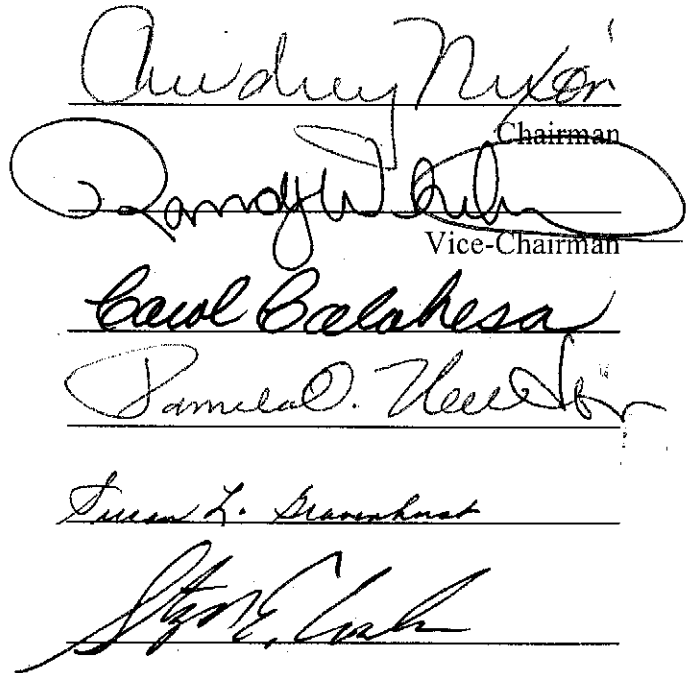 Audrey Nixon
Chairman
Randy
Vice-Chairman
Carol Calabresa
Pamela O. Newton
Susan L. Gravenhorst